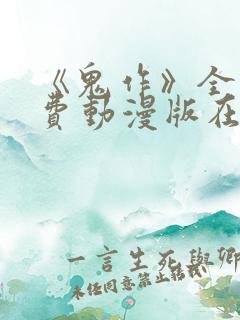 《鬼作》全
費動漫版在
一言生死與卿
未经同意禁止转载